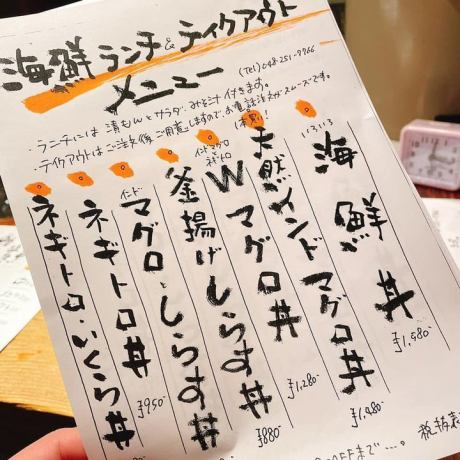 海鮮ランチ&テイクアウト
メニュー
(Tel) 048-251-9766
・ランチには 漬もんとサラダ、みそ汁 付きます。
・テイクアウトは ご注文後 ご用意しますので、お電話注文がスムーズです。
いろいろ
海鮮丼
¥1,580-
天然インドマグロ丼
¥1,480-
インドマグロと
ネギトロ
Wマグロ丼
¥1,280-
釜揚げしらす丼
¥880-
インド
マグロとしらす丼
ネギトロ丼
¥950-
ネギトロ・いくら丼
税抜表